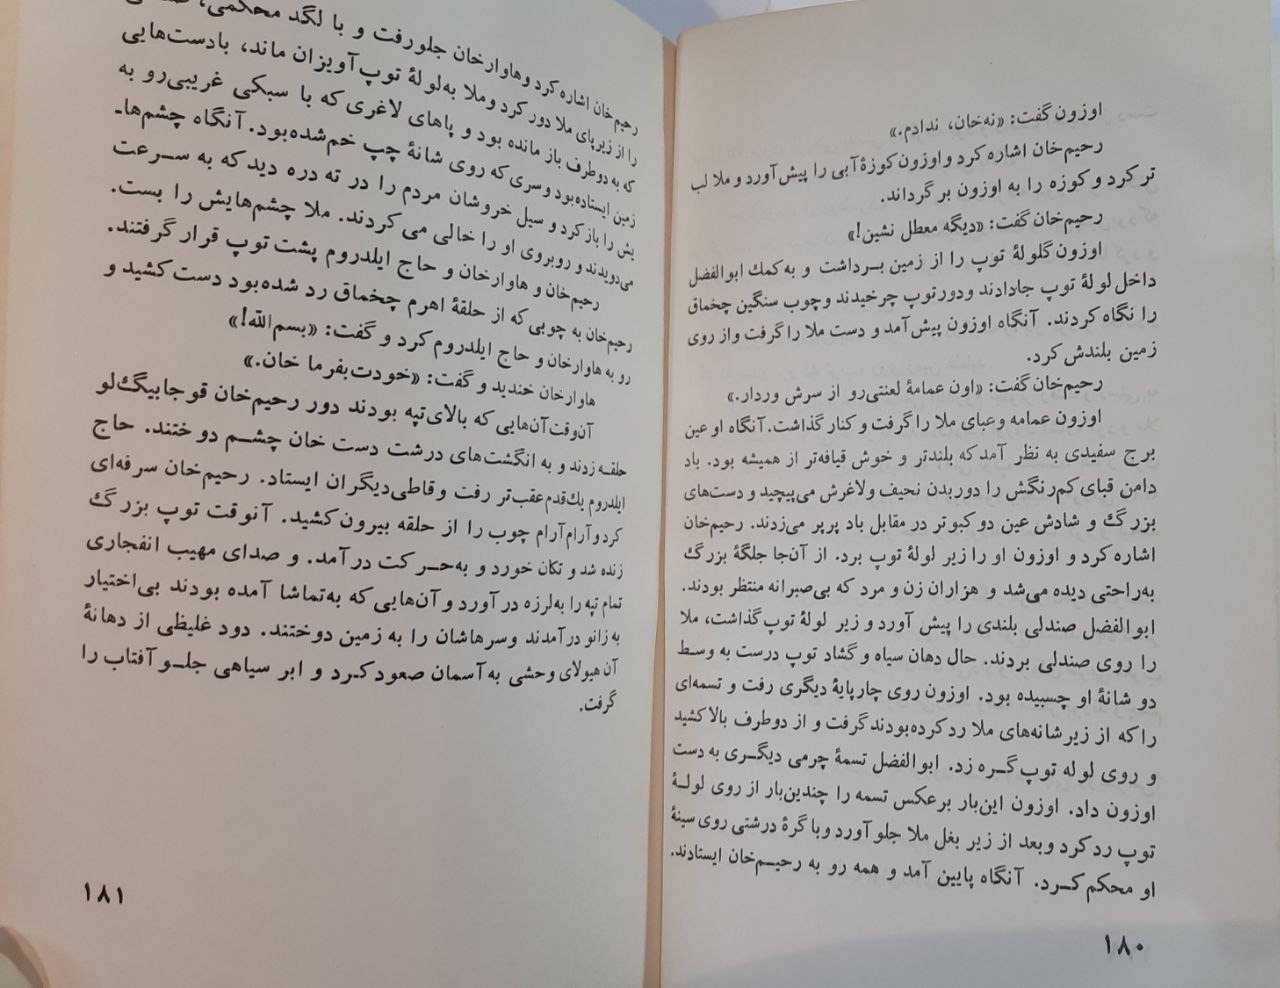 اوزون گفت: «نه‌خان، ندادم.»
رحیم‌خان اشاره کرد و اوزون کوزهٔ آبی را پیش آورد و ملا لب
تر کرد و کوزه را به اوزون برگرداند.
رحیم‌خان گفت: «دیگه معطل نشین!»
اوزون گلولهٔ توپ را از زمین بـرداشت و به کمك ابوالفضل
داخل لولهٔ توپ جا دادند و دور توپ چرخیدند و چوب سنگین چخماق
را نگاه کردند. آنگاه اوزون پیش آمد و دست ملا را گرفت و از روی
زمین بلندش کرد.
رحیم‌خان گفت: «اون عمامهٔ لعنتی‌رو از سرش وردار.»
اوزون عمامه و عبای ملا را گرفت و کنار گذاشت. آنگاه او عین
برج سفیدی به نظر آمد که بلندتر و خوش قیافه‌تر از همیشه بود. باد
دامن قبای کم‌رنگش را دور بدن نحیف و لاغرش می‌پیچید و دست‌های
بزرگ و شادش عین دو کبوتر در مقابل باد پرپر می‌زدند. رحیم‌خان
اشاره کرد و اوزون او را زیر لولهٔ توپ برد. از آن‌جا جلگهٔ بزرگ
به‌راحتی دیده می‌شد و هزاران زن و مرد که بی‌صبرانه منتظر بودند.
ابوالفضل صندلی بلندی را پیش آورد و زیر لولهٔ توپ گذاشت، ملا
را روی صندلی بردند. حال دهان سیاه و گشاد توپ درست به وسط
دو شانهٔ او چسبیده بود. اوزون روی چارپایهٔ دیگری رفت و تسمه‌ای
را که از زیر شانه‌های ملا رد کرده بودند گرفت و از دوطرف بالا کشید
و روی لوله توپ گـره زد. ابوالفضل تسمهٔ چرمی دیگـری به دست
اوزون داد. اوزون این‌بار برعکس تسمه را چندین‌بار از روی لولـهٔ
توپ رد کرد و بعد از زیر بغل ملا جلو آورد و با گرهٔ درشتی روی سینهٔ
او محکم کـرد. آنگاه پایین آمد و همه رو به رحیـم‌خان ایستادند.
۱۸۰
رحیم‌خان اشاره کرد و هاوارخان جلو رفت و با لگد محکمی،
را از زیرپای ملا دور کرد و ملا به‌لولهٔ توپ آویزان ماند، بادست‌هایی
که به دوطرف باز مانده بود و پاهای لاغری که با سبکی غریبی‌رو به
زمین ایستاده‌بود و سری که روی شانهٔ چپ خم‌شده‌بود. آنگاه چشم‌هاـ
یش را باز کرد و سیل خروشان مردم را در ته دره دید که به سـرعت
می‌دویدند و روبروی او را خالی می‌کردند. ملا چشم‌هایش را بست.
رحیم‌خان و هاوارخان و حاج ایلدروم پشت توپ قرار گرفتند.
رحیم‌خان به چوبی که از حلقهٔ اهرم چخماق رد شده‌بود دست کشید و
رو به هاوارخان و حاج ایلدروم کرد و گفت: «بسم‌الله!»
هاوارخان خندید و گفت: «خودت‌بفرما خان.»
آن‌وقت آن‌هایی که بالای‌تپه بودند دور رحیم‌خان قوجابیگ‌لو
حلقـه زدند و به انگشت‌های درشت دست خان چشـم دوختند. حاج
ایلدروم یك‌قدم عقب‌تر رفت و قاطی‌دیگران ایستاد. رحیم‌خان سرفه‌ای
کرد و آرام‌آرام چوب را از حلقه بیرون کشید. آنوقت توپ بزرگ
زنده شد و تکان خورد و به‌حـرکت درآمد. و صدای مهیب انفجاری
تمام تپه را به‌لرزه در آورد و آن‌هایی که به‌تماشا آمده بودند بی‌اختیار
به زانو درآمدند و سرهاشان را به زمین دوختند. دود غلیظی از دهانهٔ
آن هیولای وحشی به آسمان صعود کـرد و ابر سیاهی جلـو آفتاب را
گرفت.
۱۸۱